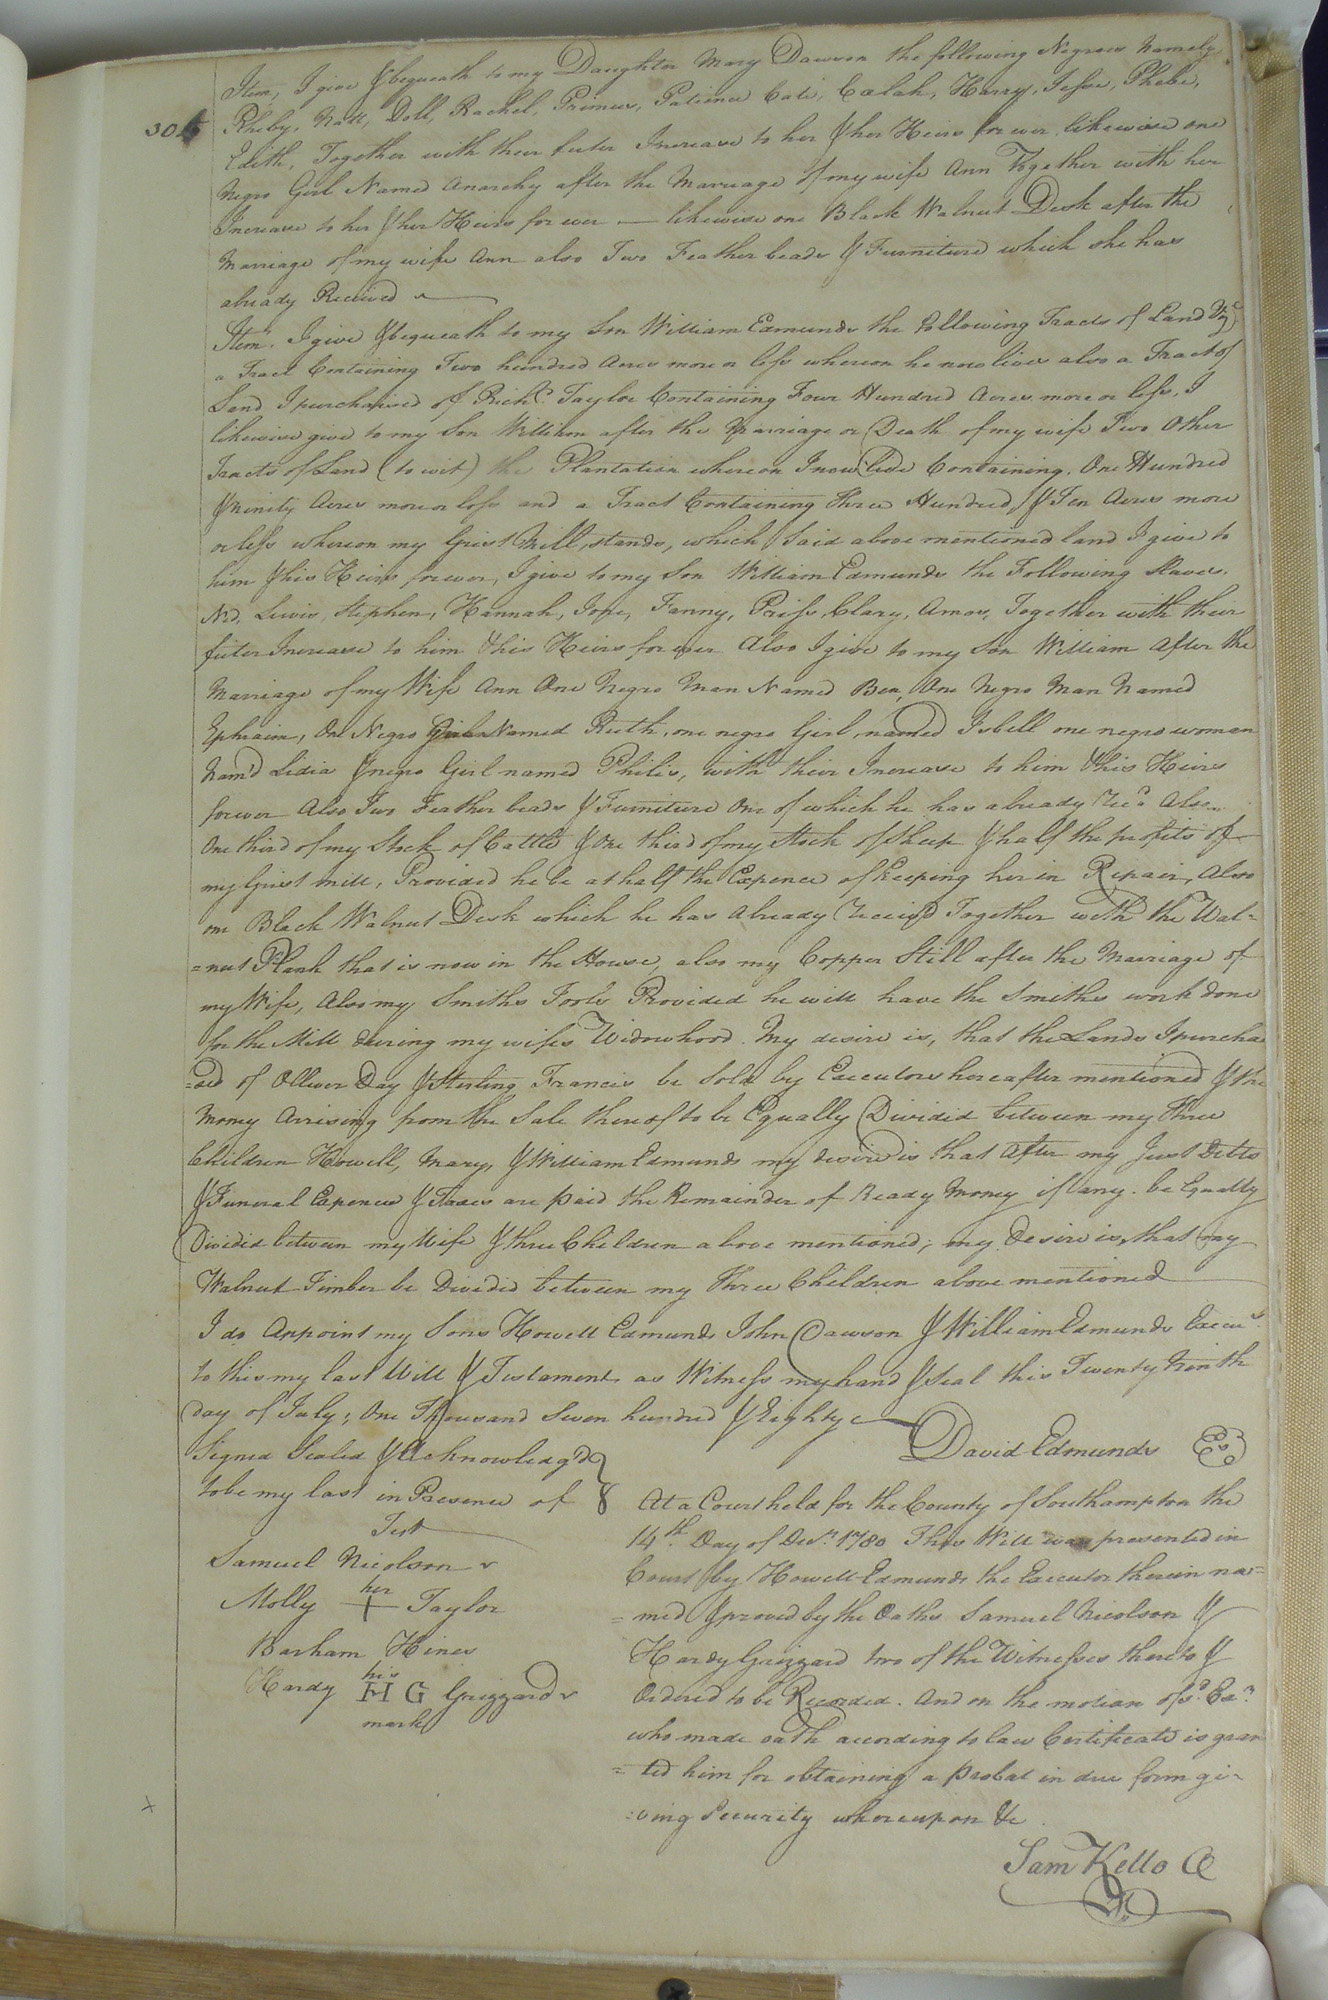 Item, I give & bequeath to my Daughter Mary Dawson the following Negroes Namely,
30
Pheby, Natt, Doll, Rachel, Primus, Patience Cate, Harry, Jesse, Phebe,
Edith, Together with their futer Increase to her & her Heirs forever likewise one
Negro Girl Named Anarchy after the Marriage of my wife Ann Together with her
Increase to her & her Heirs forever — likewise one Black Walnut Desk after the
Marriage of my wife Ann also Two Feather beads & Furniture which she has
already Received
Item. I give & bequeath to my Son William Edmunds the Following Tracts of Land Viz
a Tract Containing Two hundred Acres more or less whereon he now lives also a Tract of
Land I purchased of Richd. Tayloe Containing Four Hundred Acres more or less, I
likewise give to my Son William after the Marriage or Death of my wife Two Other
Tracts of Land (to wit) the Plantation whereon I now live Containing, One Hundred
& ninity Acres more or less and a Tract Containing three Hundred & Ten Acres more
or less whereon my Grist Mill, stands, which Said above mentioned land I give to
him & his Heirs forever, I give to my Son William Edmunds the Following Slaves.
Ned, Lewis, Stephen, Hannah, Fanny, Priss, Clary, Amos, Together with their
futer Increase to him & his Heirs forever Also I give to my Son William After the
Marriage of my Wife Ann One Negro Man Named Ben, One Negro Man Named
Ephraim, One Negro Girl Named Ruth, one negro Girl, named Isbell one negro woman
Nam'd Lidia & negro Girl named Philis, with their Increase to him & his Heirs
forever Also Two Feather beads & Furniture One of which he has already Rec'd Also
One third of my Stock of Cattle & One third of my Stock of Sheep & half the profits of
my Grist mill, Provided he be at half the Expence of keeping her in Repair, Also
one Black Walnut Desk which he has Already Receiv'd Together with the Wal=
=nut Plank that is now in the House, also my Copper Still after the Marriage of
my Wife, Also my Smiths Tools Provided he will have the Smiths work done
for the Mill during my wifes Widowhood. My desire is, that the Lands I purcha
=sed of Olliver Day & Sterling Francis be Sold by Executors hereafter mentioned & the
Money Arrising from the Sale thereof to be Equally Divided between my three
Children Howell, Mary, & William Edmunds my desire is that After my Just Debts
& Funeral Expences & Taxes are paid the Remainder of Ready Money if any. be Equally
Divided between my Wife & three Children above mentioned; my Desire is, that my
Walnut Timber be Divided between my three Children above mentioned
I do Appoint my Sons Howell Edmunds John Dawson & William Edmunds Execurs.
to this my last Will & Testament as Witness my hand & Seal this Twenty Ninth
day of July, One Thousand Seven hundred & Eighty
David Edmunds
Signed Sealed & Acknowledg'd
to be my last in Presence of
Test
Samuel Nicolson
her
Molly + Taylor
Barham Hines
his
Hardy HG Grizzard
mark
At a Court held for the County of Southampton the
14th. Day of Decr. 1780 This Will was presented in
Court by Howell Edmunds the Executor therein na=
=med & proved by the Oaths Samuel Nicolson &
Hardy Grizzard two of the Witnesses thereto &
Ordered to be Recorded. And on the motion of sd. Exr.
who made oath according to law Certificate is gran
=ted him for obtaining a Probat in due form gi-
=ving Security whereupon &c
Sam Kello
x